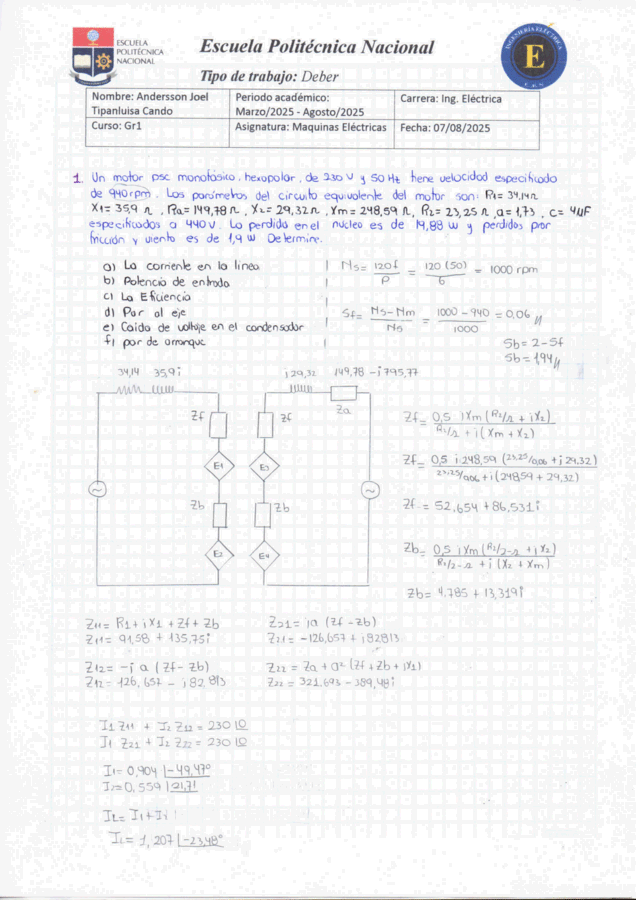 ESCUELA
POLITÉCNICA
NACIONAL
Escuela Politécnica Nacional
Tipo de trabajo: Deber
INGENIERÍA ELÉCTRICA
E
E.P.N
Nombre: Andersson Joel Tipanluisa Cando
Periodo académico: Marzo/2025 - Agosto/2025
Carrera: Ing. Eléctrica
Curso: Gr1
Asignatura: Maquinas Eléctricas
Fecha: 07/08/2025
1. Un motor psc monofásico, hexapolar, de 230 V y 50 Hz tiene velocidad especificado
de 940 rpm. Los parámetros del circuito equivalente del motor son: R1= 34,14 Ω
X1= 35,9 Ω, Ra= 149,78 Ω, X2= 29,32 Ω, Xm= 248,59 Ω, R2= 23,25 Ω, a= 1,73, c= 4µF
especificados a 440 V. La perdida en el nucleo es de 19,88 w y perdidas por
fricción y viento es de 1,9 w Determine.
a) La corriente en la linea
b) Potencia de entrada
c) La Eficiencia
d) Par al eje
e) Caida de voltaje en el condensador
f) par de arranque
Ns = 120f / P = 120 (50) / 6 = 1000 rpm
Sf = Ns - Nm / Ns = 1000 - 940 / 1000 = 0.06
Sb = 2 - Sf
Sb = 1,94
34,14 35,9i
i29,32 149,78 - i795,77
Zf
Zf
Za
E1
E3
Zb
Zb
E2
E4
Zf = 0,5 iXm (R2/s + iX2) / R2/s + i (Xm + X2)
Zf = 0,5 i 248,59 (23,25/0,06 + i 29,32) / 23,25/0,06 + i (248,59 + 29,32)
Zf = 52,654 + 86,531i
Zb = 0,5 iXm (R2/2-s + iX2) / R2/2-s + i (X2 + Xm)
Zb = 4,785 + 13,319i
Z11 = R1 + iX1 + Zf + Zb
Z11 = 91,58 + 135,75i
Z21 = ia (Zf - Zb)
Z21 = -126,657 + i82813
Z12 = -i a (Zf - Zb)
Z12 = 126,657 - i82,813
Z22 = Za + a² (Zf + Zb + iX1)
Z22 = 321,693 - 389,48i
I1 Z11 + I2 Z12 = 230 ∠0
I1 Z21 + I2 Z22 = 230 ∠0
I1 = 0,904 ∠-49,47°
I2 = 0,559 ∠21,71
IL = I1 + I2
IL = 1,207 ∠-23,48°